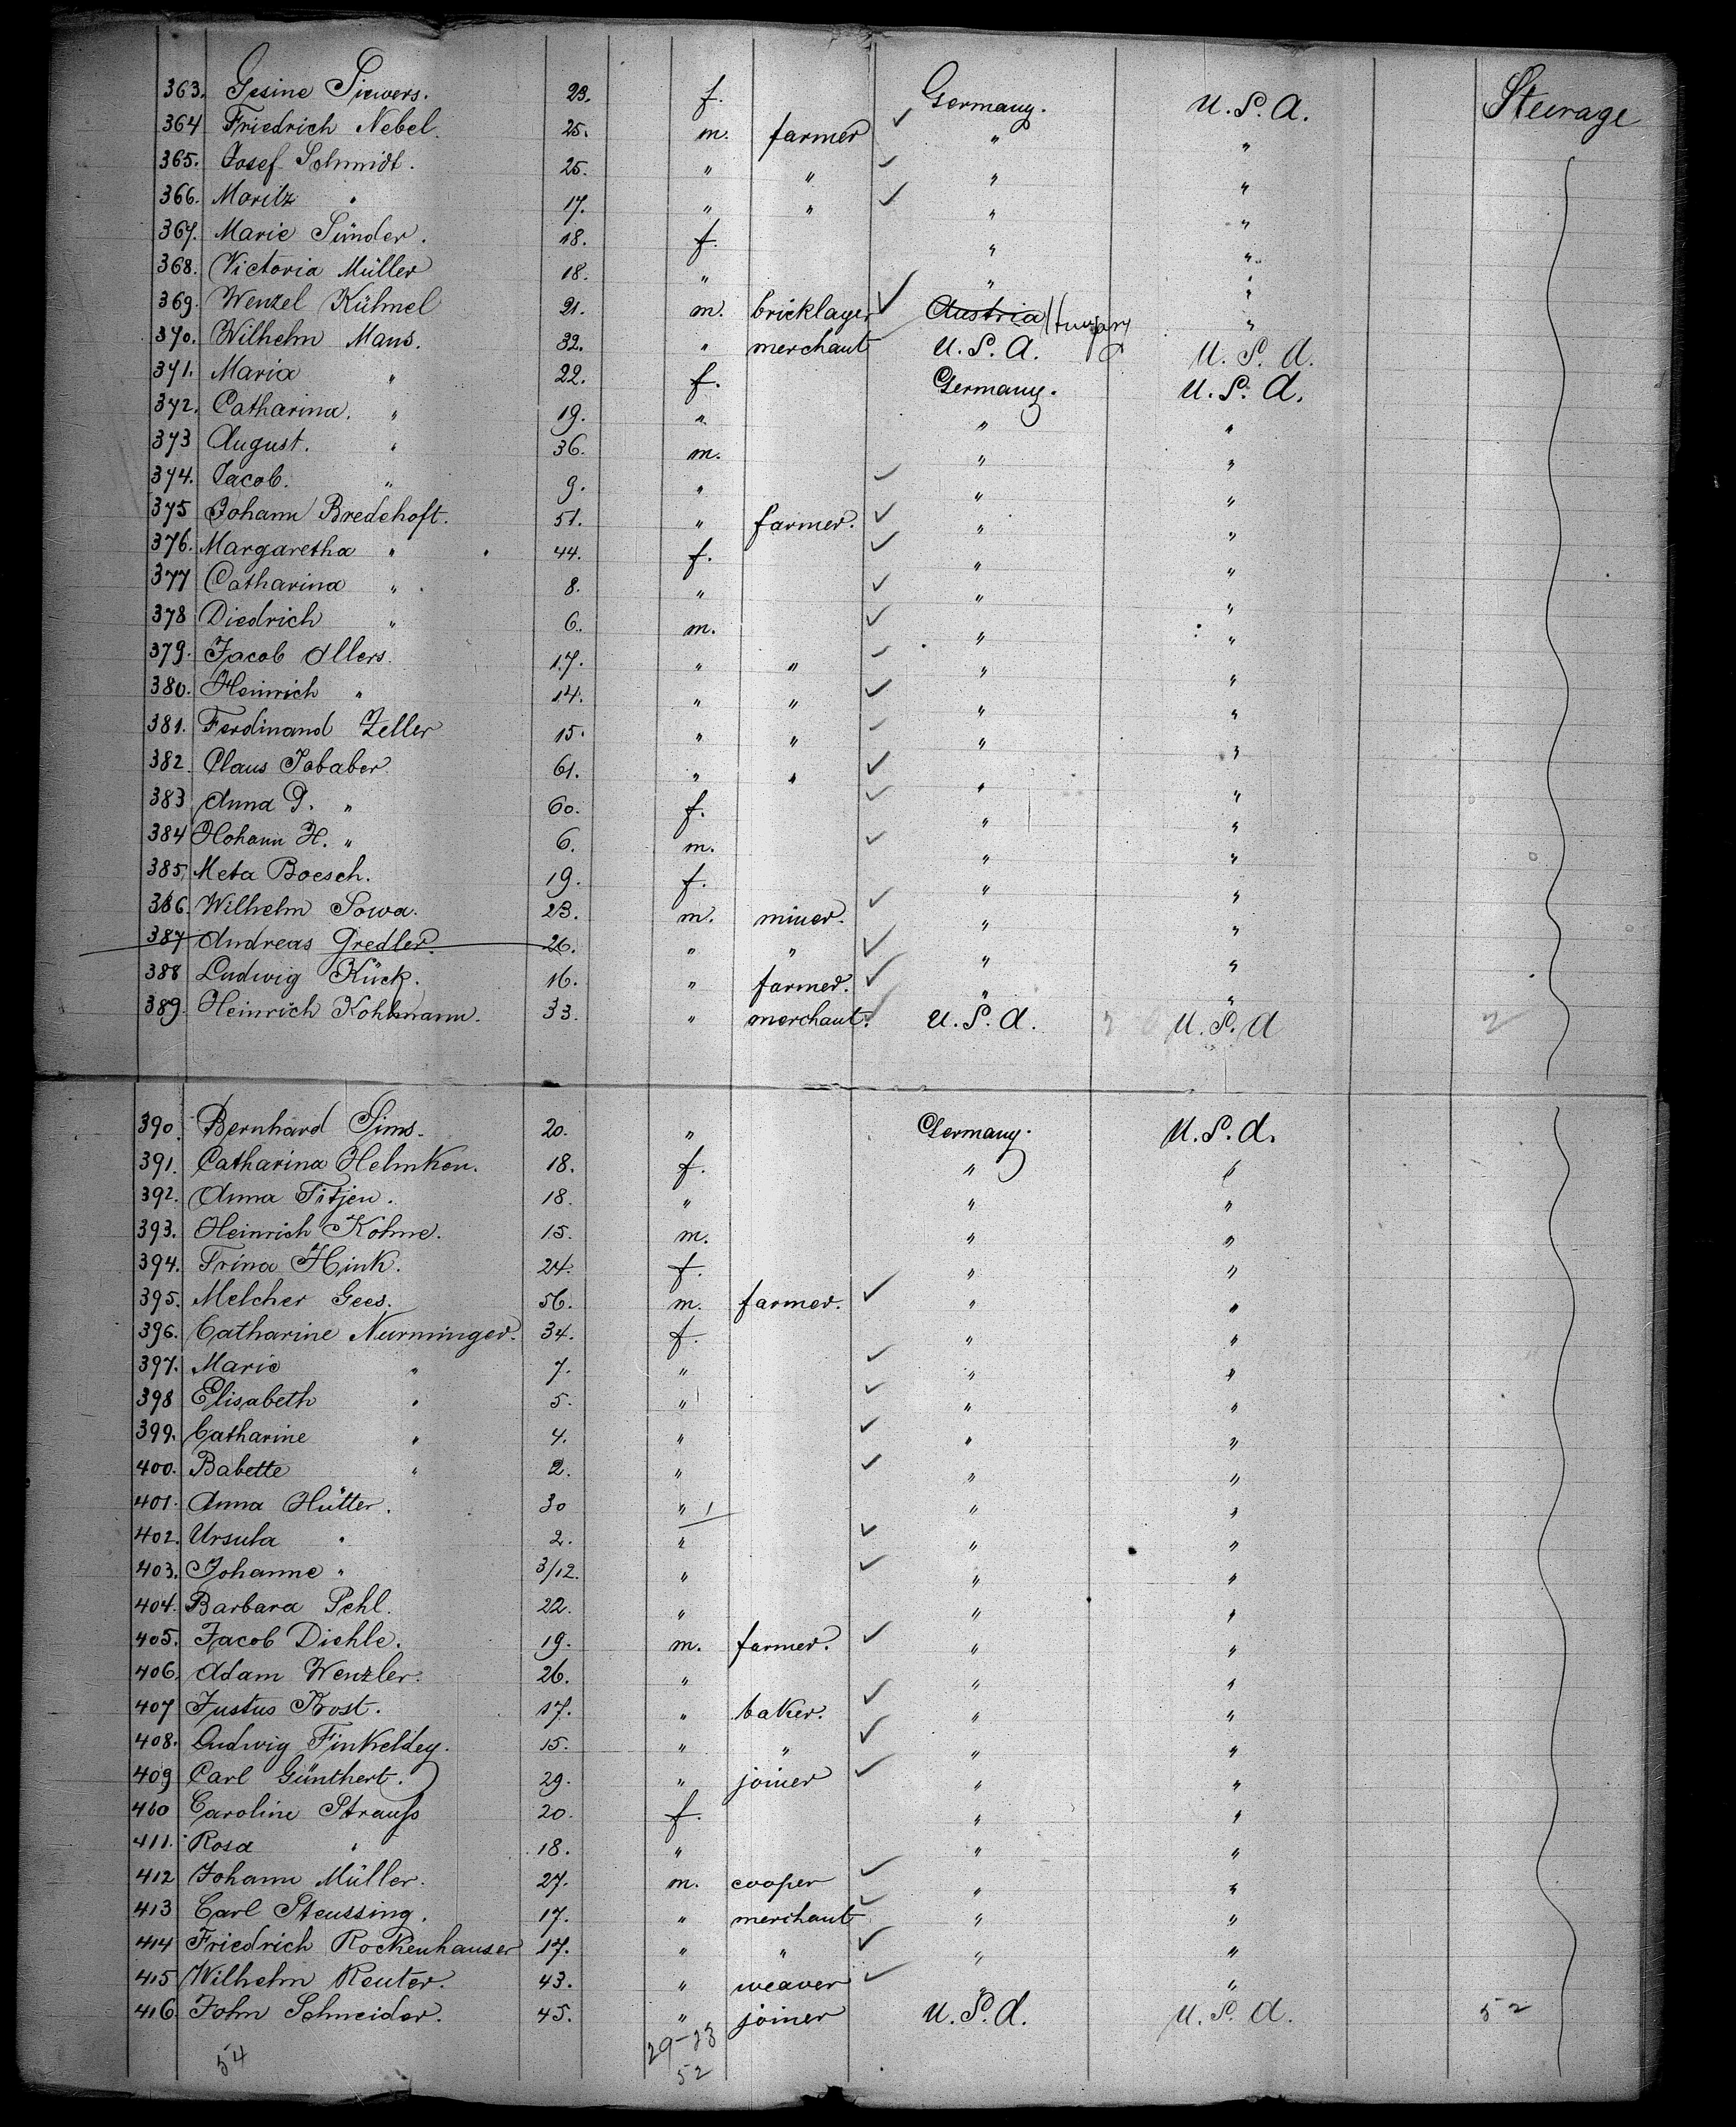 363. Gesine Siewers. 23. f. Germany. U. S. A. Steerage
364 Friedrich Nebel. 25. m. farmer " "
365. Josef Schmidt. 25. " " " "
366. Moritz " 17. " " " "
367. Marie Sünder. 18. f. " "
368. Victoria Müller 18. " " "
369. Wenzel Kühnel 21. m. bricklayer Austria Hungary "
370. Wilhelm Maus. 32. " merchant U. S. A. U. S. A.
371. Maria " 22. f. Germany. U. S. A.
372. Catharina. " 19. " " "
373 August. " 36. m. " "
374. Jacob. " 9. " " "
375 Johann Bredehoft. 51. " farmer. " "
376. Margaretha " 44. f. " "
377 Catharina " 8. " " "
378 Diedrich " 6. m. " "
379. Jacob Allers. 17. " " " "
380. Heinrich " 14. " " " "
381. Ferdinand Zeller 15. " " " "
382. Claus Jobaber. 61. " " " "
383 Anna P. " 60. f. " "
384 Hohann H. " 6. m. " "
385. Meta Boesch. 19. f. " "
386. Wilhelm Sowa. 23. m. miner. " "
387 Andreas Gredler. 26. " " " "
388 Ludwig Kück. 16. " farmer. " "
389. Heinrich Kohlmann. 33. " merchant. U. S. A. U. S. A
390. Bernhard Sims. 20. " Germany. U. S. A.
391. Catharina Helmken. 18. f. " "
392. Anna Titjen. 18. " " "
393. Heinrich Kohne. 15. m. " "
394. Trina Hink. 24. f. " "
395. Melcher Gees. 56. m. farmer. " "
396. Catharine Nurminger. 34. f. " "
397. Marie " 7. " " "
398 Elisabeth " 5. " " "
399. Catharine " 4. " " "
400. Babette " 2. " " "
401. Anna Hütter. 30 " 1 " "
402. Ursula " 2. " " "
403. Johanne " 3/12. " " "
404. Barbara Pehl. 22. " " "
405. Jacob Diehle. 19. m. farmer. " "
406. Adam Wenzler. 26. " " "
407 Justus Brost. 17. " baker. " "
408. Ludwig Finkeldey. 15. " " " "
409 Carl Günthert. 29. " joiner " "
410 Caroline Strauß 20. f. " "
411. Rosa " 18. " " "
412 Johann Müller. 27. m. cooper " "
413 Carl Steussing. 17. " merchant " "
414 Friedrich Rockenhauser 17. " " " "
415 Wilhelm Reuter. 43. " weaver " "
416. John Schneider. 45. " joiner U. S. A. U. S. A. 52
54 29-23
52